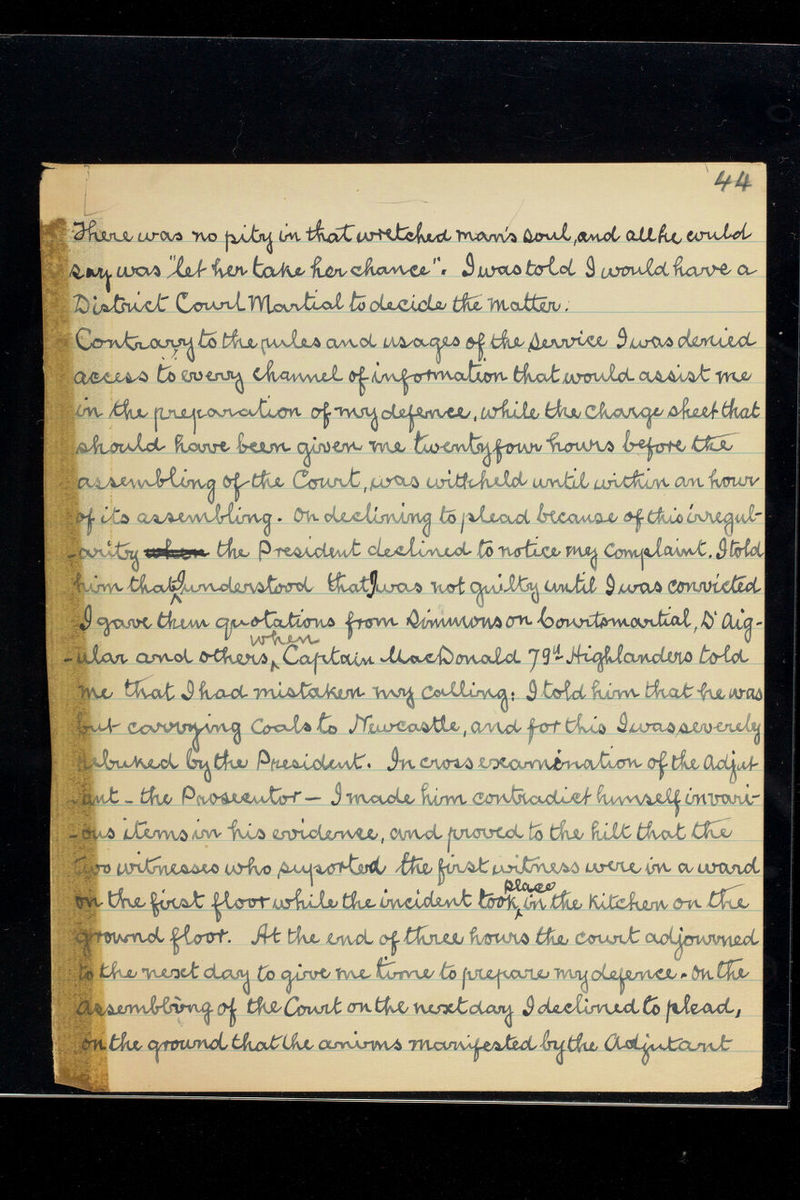 44
There was no pity in that wretched man's soul, and all he could
say was "let her take her chance". I was told I would have a
District Court Martial to decide the matter.
Contrary to the rules and usages of the Service I was denied
access to every channel of information that would assist me
in the preparation of my defence, while the charge sheet that
should have been given me twentyfour hours before the
assembling of the Court, was withheld until within an hour
of its assembling. On declining to plead because of this irregul-
-arity the President declined to notice my complaint. I told
him that I understood that I was not guilty until I was convicted
I gave them quotations from Simmons on Courtsmartial, D'Aig-
-ular and others, when Captain MacDonald 79th Highlanders told
me that I had mistaken my calling; I told him that he was
but carrying Coals to Newcastle, and for this I was severely
rebuked by the President. In cross examination of the Adjut-
-ant - the Prosecutor - I made him contradict himself in vari-
-ous items in his evidence, and proved to the hilt that the
two witnesses who suported the first witness were in a ward
on the first floor while the incident took place in the kitchen on the
ground floor. At the end of three hours the court adjourned
to the next day to give me time to prepare my defence. On the
assembling of the Court on the next day I declined to plead,
on the ground that the animus manifested by the Adjutant